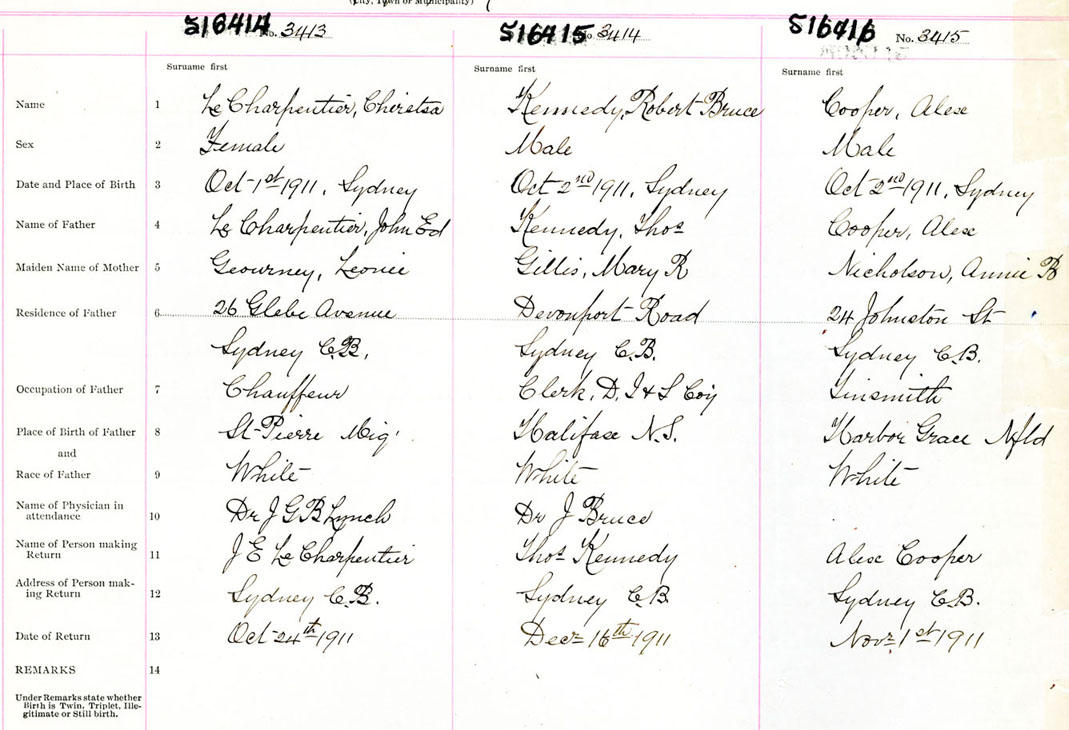 (City, Town or Municipality)
516414 No. 3413 516415 No 3414 516416 No. 3415
Surname first Surname first Surname first
Name 1 Le Charpentier, Cheretsa Kennedy, Robert Bruce Cooper, Alex
Sex 2 Female Male Male
Date and Place of Birth 3 Oct 1st 1911, Sydney Oct 2nd 1911, Sydney Oct 2nd 1911, Sydney
Name of Father 4 Le Charpentier, John Ed Kennedy, Thos Cooper, Alex
Maiden Name of Mother 5 Geourney, Leonie Gillis, Mary R Nicholson, Annie B
Residence of Father 6 26 Glebe Avenue Devonport Road 24 Johnston St
Sydney C.B. Sydney C.B. Sydney C.B.
Occupation of Father 7 Chauffeur Clerk, D. I & S Coy Tinsmith
Place of Birth of Father 8 St-Pierre Miq. Halifax N.S. Harbor Grace Nfld
and
Race of Father 9 White White White
Name of Physician in
attendance 10 Dr J G B Lynch Dr J Bruce
Name of Person making
Return 11 J E Le Charpentier Thos Kennedy Alex Cooper
Address of Person mak-
ing Return 12 Sydney C.B. Sydney C.B Sydney C.B.
Date of Return 13 Oct 24th 1911 Decr 16th 1911 Novr 1st 1911
REMARKS 14
Under Remarks state whether
Birth is Twin, Triplet, Ille-
gitimate or Still birth.